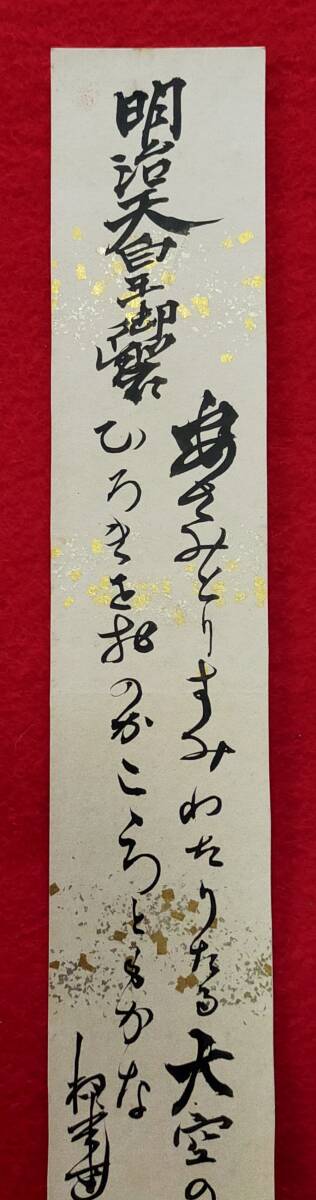 明治天皇御製
安さみとりすみわたりたる大空の
ひろきを於のがこゝろともがな